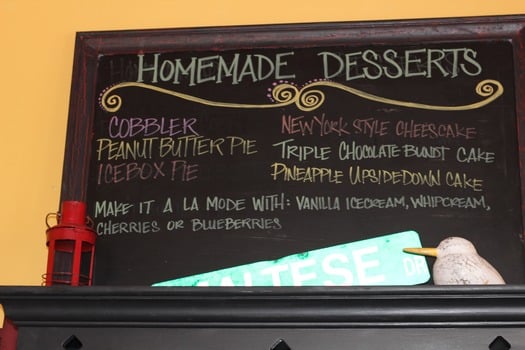 HOMEMADE DESSERTS
COBBLER
PEANUT BUTTER PIE
ICEBOX PIE
NEW YORK STYLE CHEESCAKE
TRIPLE CHOCOLATE BUNDT CAKE
PINEAPPLE UPSIDEDOWN CAKE
MAKE IT A LA MODE WITH: VANILLA ICECREAM, WHIPCREAM,
CHERRIES OR BLUEBERRIES
MALTESE DR